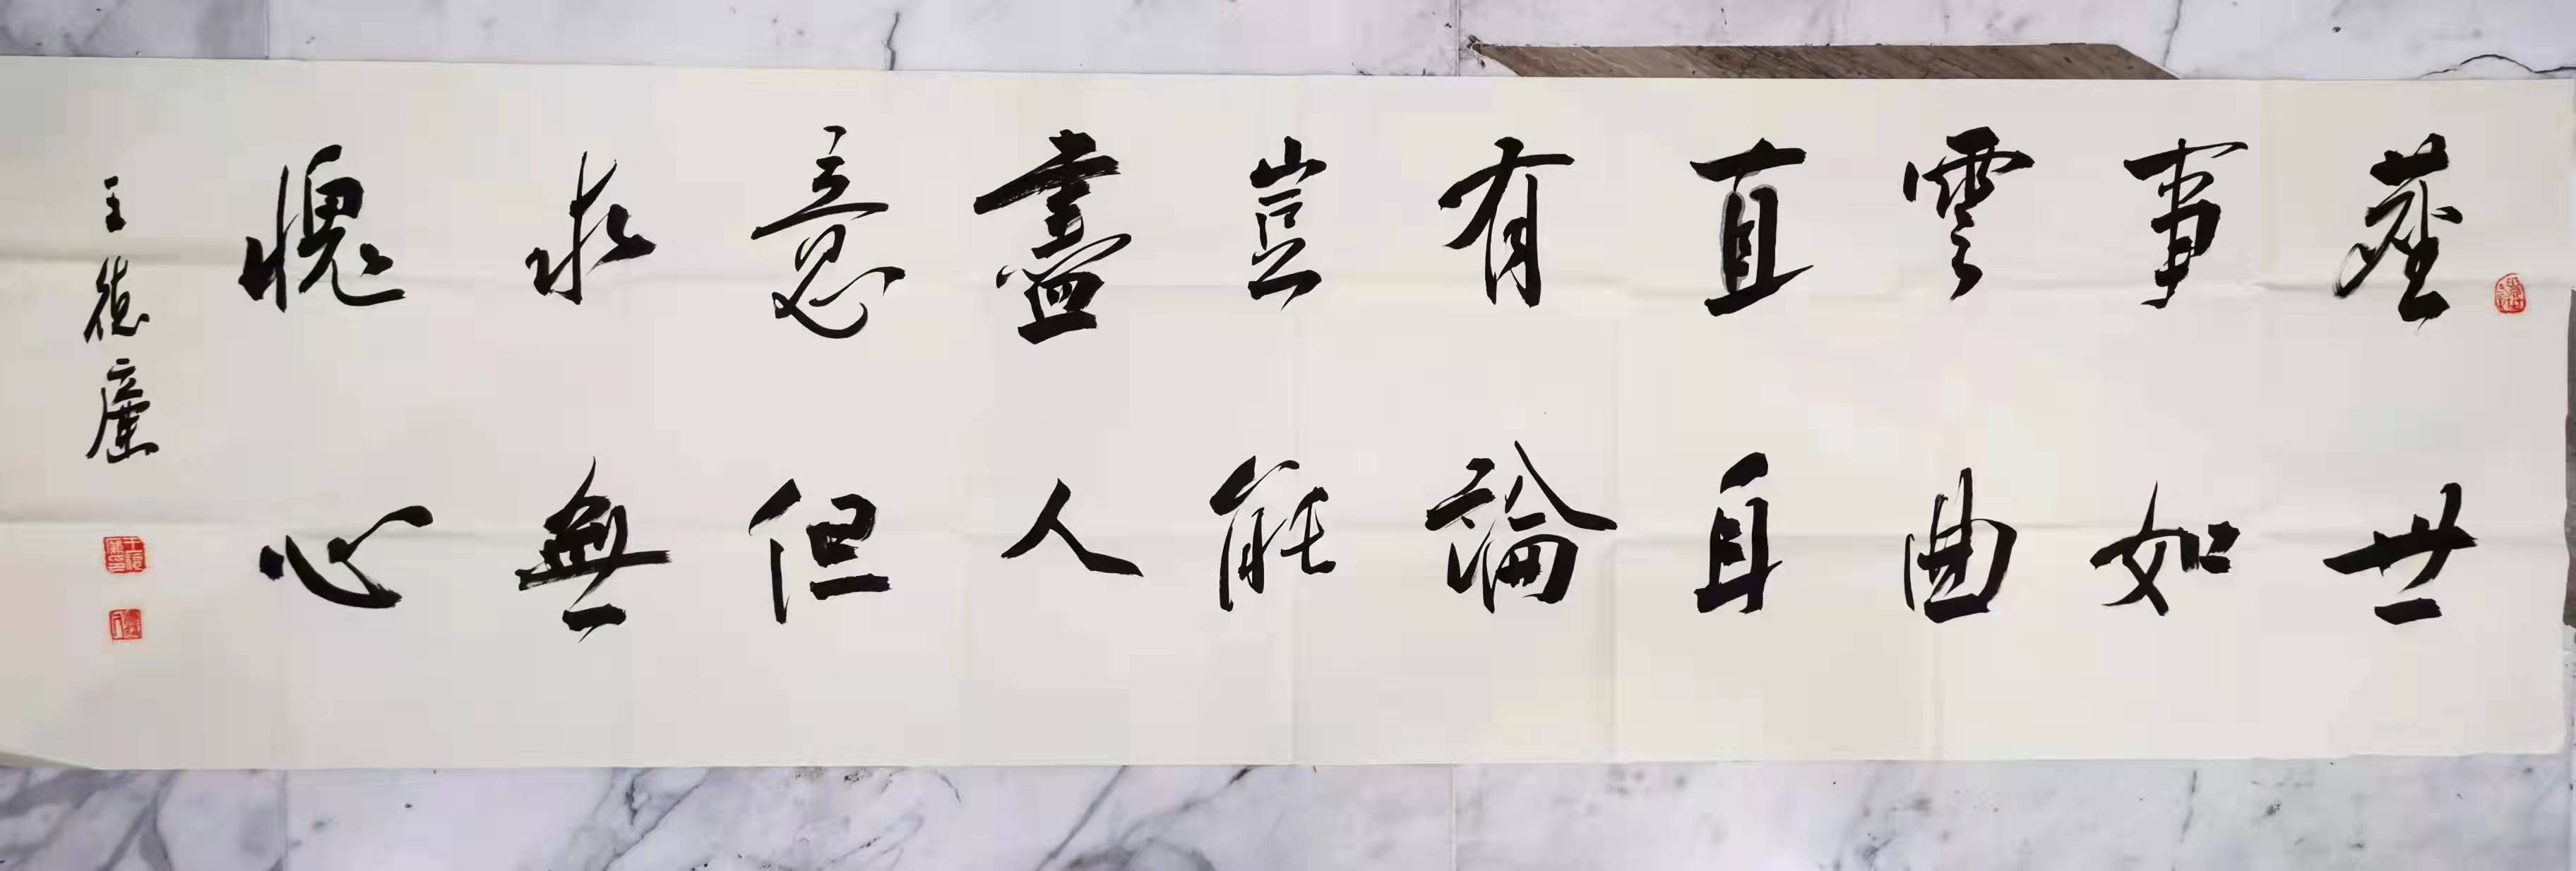 世
事如
雲曲
直自
有論
豈能
盡人
意但
求無
愧心
王德廉